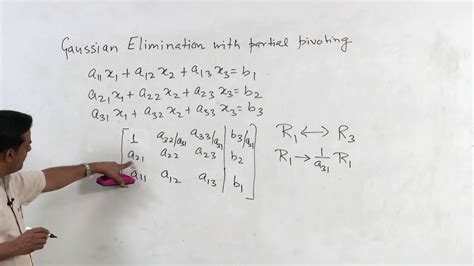 Gaussian Elimination with partial pivoting
a₁₁x₁+a₁₂x₂+a₁₃x₃=b₁
a₂₁x₁+a₂₂x₂+a₂₃x₃=b₂
a₃₁x₁+a₃₂x₂+a₃₃x₃=b₃
1 a₃₂/a₃₁ a₃₃/a₃₁ | b₃/a₃₁
a₂₁ a₂₂ a₂₃ | b₂
a₁₁ a₁₂ a₁₃ | b₁
R₁ ↔ R₃
R₁ → 1/a₃₁ R₁